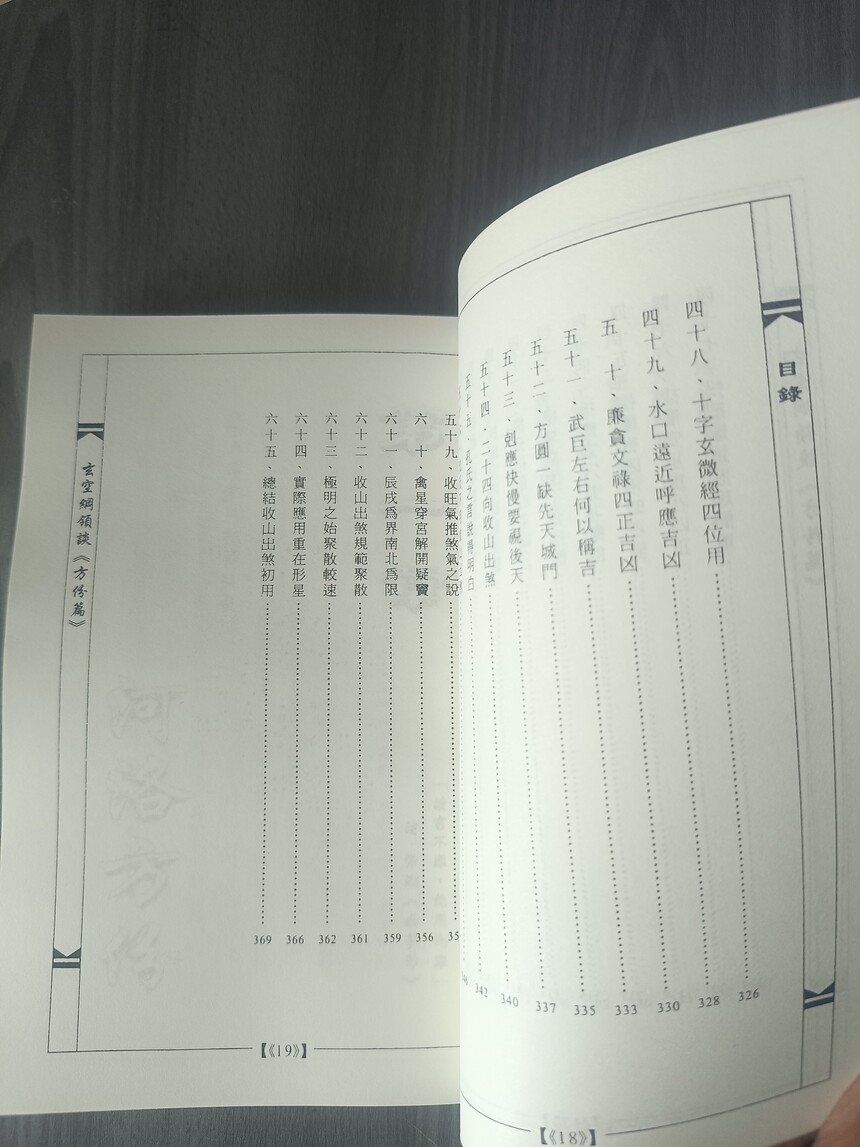 目錄
四十八、十字玄微經四位用……326
四十九、水口遠近呼應吉凶……328
五　十、廉貪文祿四正吉凶……330
五十一、武巨左右何以稱吉……333
五十二、方圓一缺先天城門……335
五十三、剋應快慢要視後天……337
五十四、二十四向收山出煞……340
五十五、孔氏之言說得明白……342
【《18》】
五十九、收旺氣推煞氣之說……35
六　十、禽星穿宮解開疑竇……356
六十一、辰戌為界南北為限……359
六十二、收山出煞規範聚散……361
六十三、極明之始聚散較速……362
六十四、實際應用重在形星……366
六十五、總結收山出煞初用……369
玄空綱領談《方份篇》
【《19》】